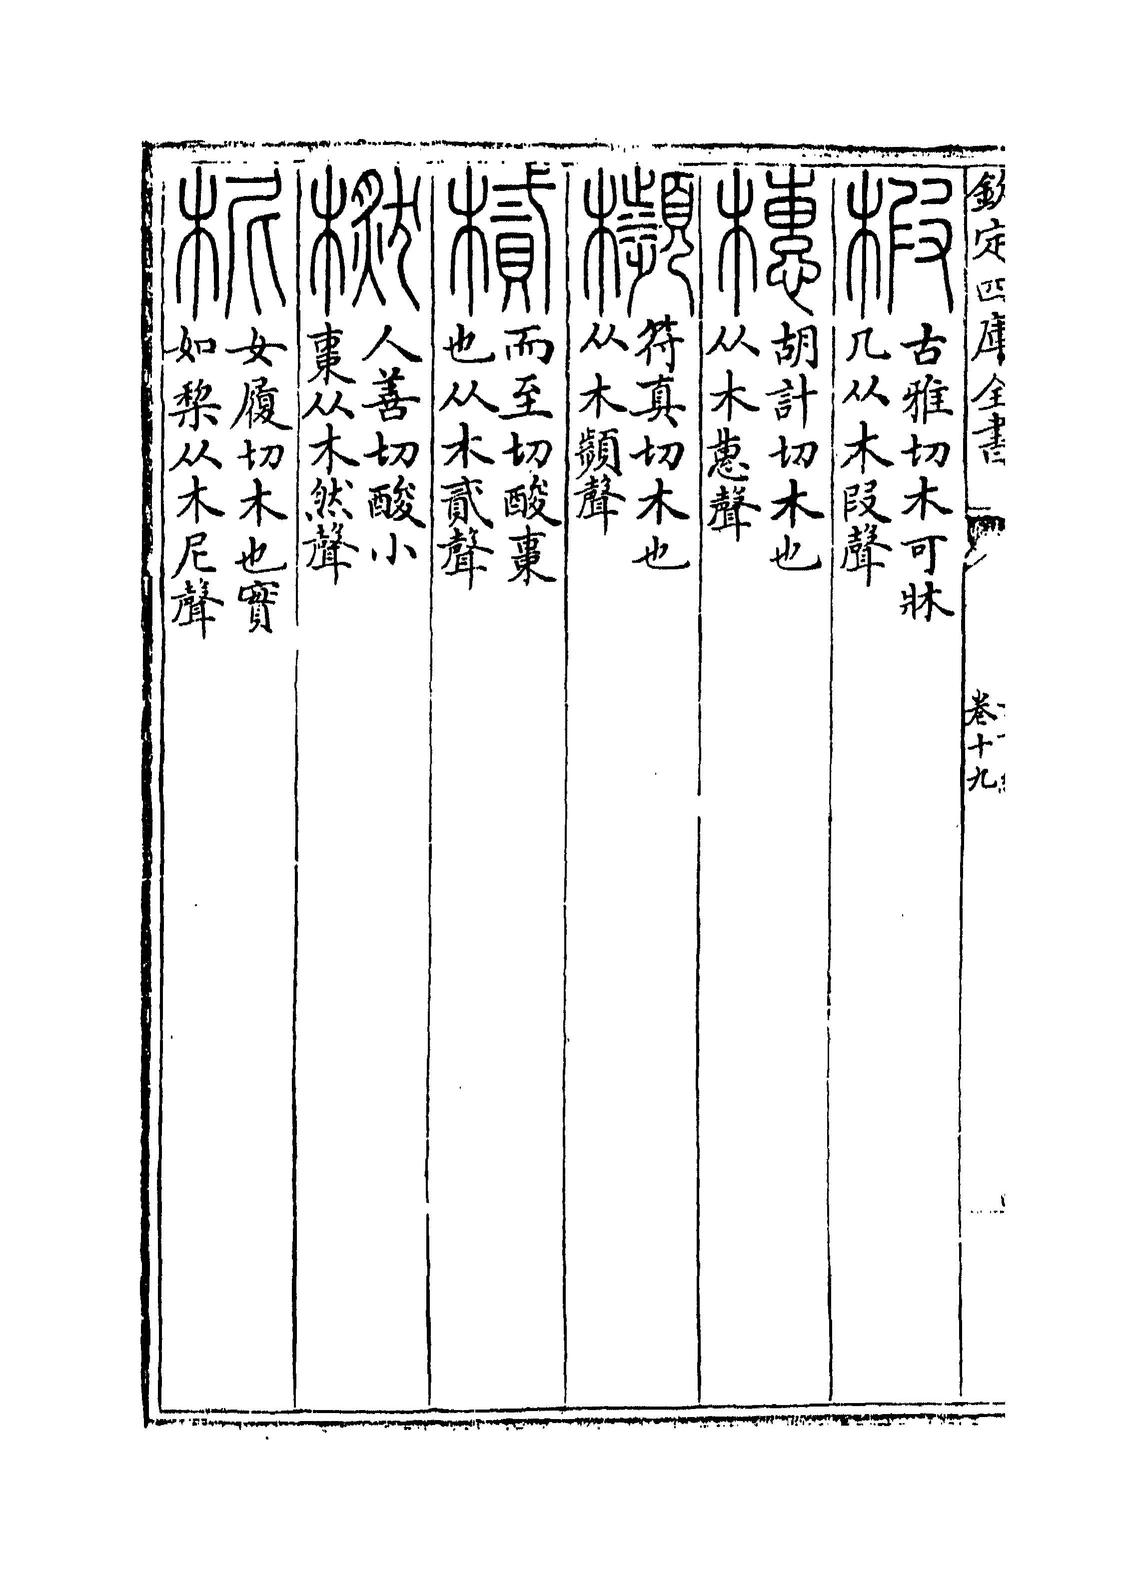 欽定四庫全書
卷十九
椵
古雅切木可牀
几从木叚聲
橞
胡計切木也
从木惠聲
櫇
符真切木也
从木頻聲
樲
而至切酸棗
也从木貳聲
橪
人善切酸小
棗从木然聲
柅
女履切木也實
如棃从木尼聲